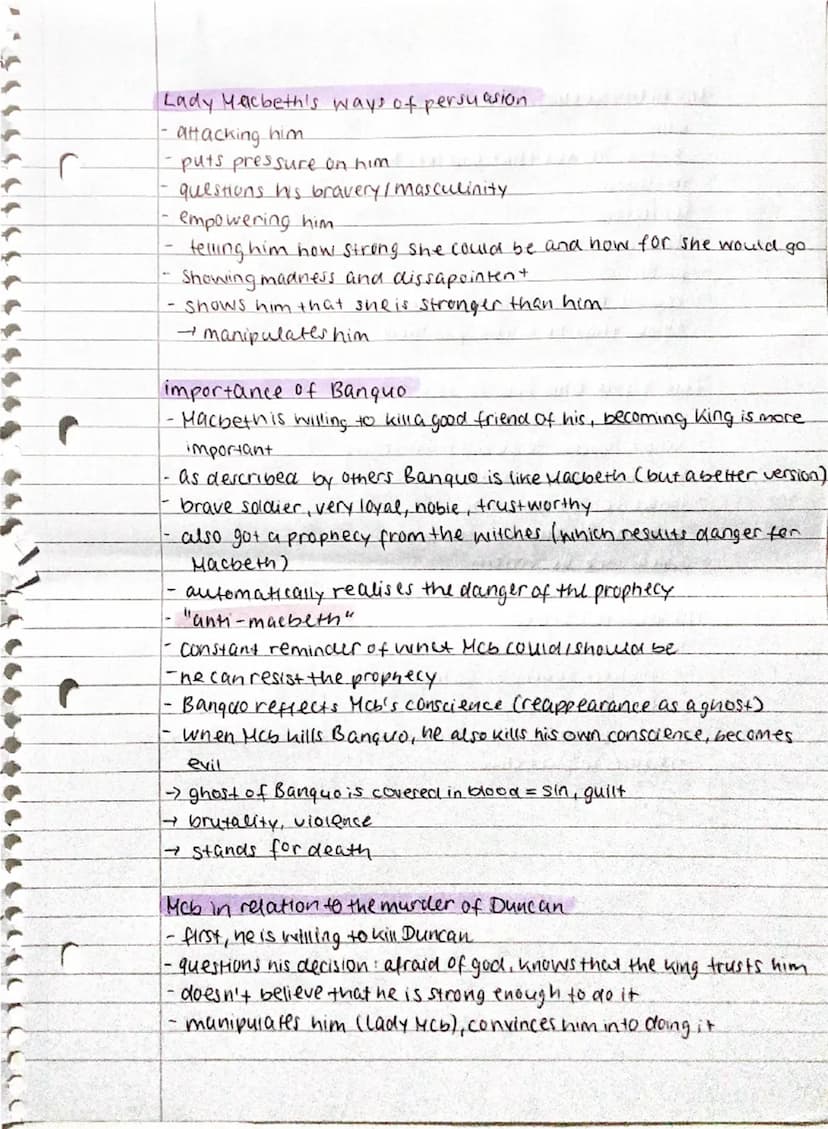 Lady Macbeth's ways of persuasion
- attacking him
- puts pressure on him
- questions his bravery/masculinity
- empowering him
- telling him how strong she could be and how far she would go
- showing madness and dissapointent
- shows him that she is stronger than him
→ manipulates him
importance of Banquo
- Macbeth is willing to kill a good friend of his, becoming King is more
important
- as described by others Banquo is like Macbeth (but a better version)
- brave soldier, very loyal, noble, trustworthy
- also got a prophecy from the witches (which results danger for
Macbeth)
- automatically realises the danger of the prophecy
- "anti-macbeth"
- constant reminder of what Mcb could/should be
- he can resist the prophecy
- Banquo reflects Mcb's conscience (reappearance as a ghost)
- when Mcb kills Banquo, he also kills his own conscience, becomes
evil
→ ghost of Banquo is covered in blood = sin, guilt
→ brutality, violence
→ stands for death
Mcb in relation to the murder of Duncan
- first, he is willing to kill Duncan
- questions his decision: afraid of god, knows that the king trusts him
- doesn't believe that he is strong enough to do it
- manipulates him (lady Mcb), convinces him into doing it